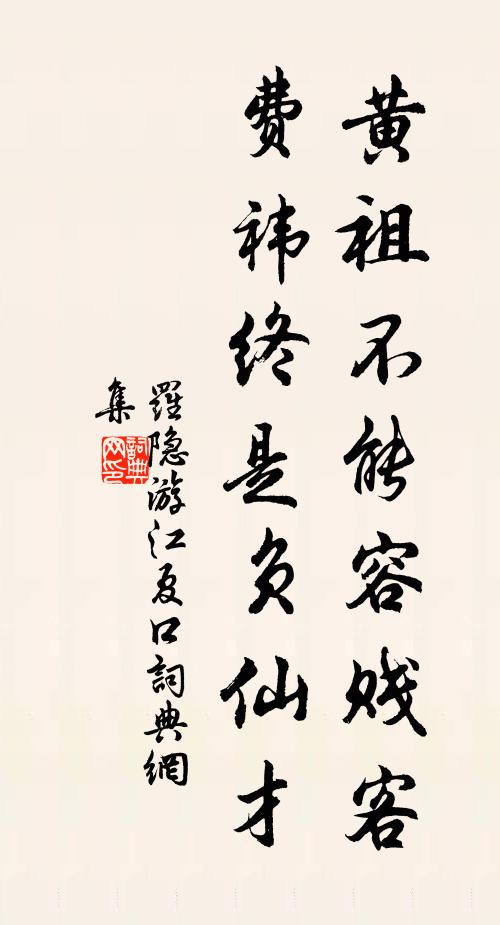 黄祖不能容贱客
费祎终是负仙才
羅隐游江夏口詞典網
集
詞典网印